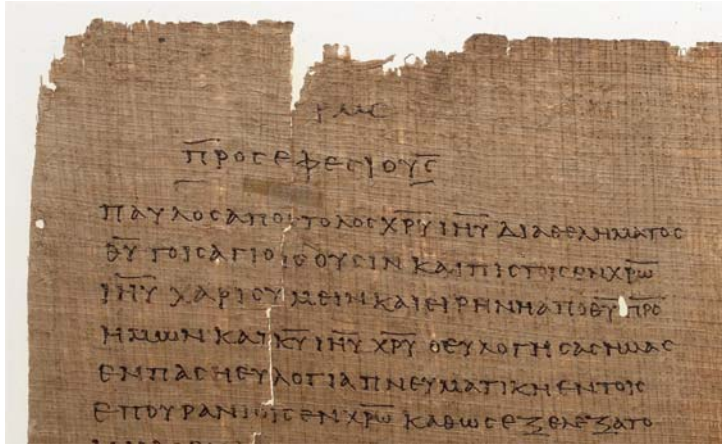 ΡΜϚ
Π̅ΡΟϹΕΦΕϹΙΟΥϹ̅
ΠΑΥΛΟϹΑΠΟϹΤΟΛΟϹΧ̅Ρ̅Υ̅Ι̅Η̅Υ̅ΔΙΑΘΕΛΗΜΑΤΟϹ
Θ̅Υ̅ΤΟΙϹΑΓΙΟΙϹΟΥϹΙΝΚΑΙΠΙϹΤΟΙϹΕΝΧ̅Ρ̅Ω̅
Ι̅Η̅Υ̅ΧΑΡΙϹΥΜΕΙΝΚΑΙΕΙΡΗΝΗΑΠΟΘ̅Υ̅Π̅Ρ̅Ο̅
ΗΜΩΝΚΑΙΚ̅Υ̅Ι̅Η̅Υ̅Χ̅Ρ̅Υ̅ΟΕΥΛΟΓΗϹΑϹΗΜΑϹ
ΕΝΠΑϹΗΕΥΛΟΓΙΑΠΝΕΥΜΑΤΙΚΗΕΝΤΟΙϹ
ΕΠΟΥΡΑΝΙΟΙϹΕΝΧ̅Ρ̅Ω̅ΚΑΘΩϹΕΞΕΛΕΞΑΤΟ